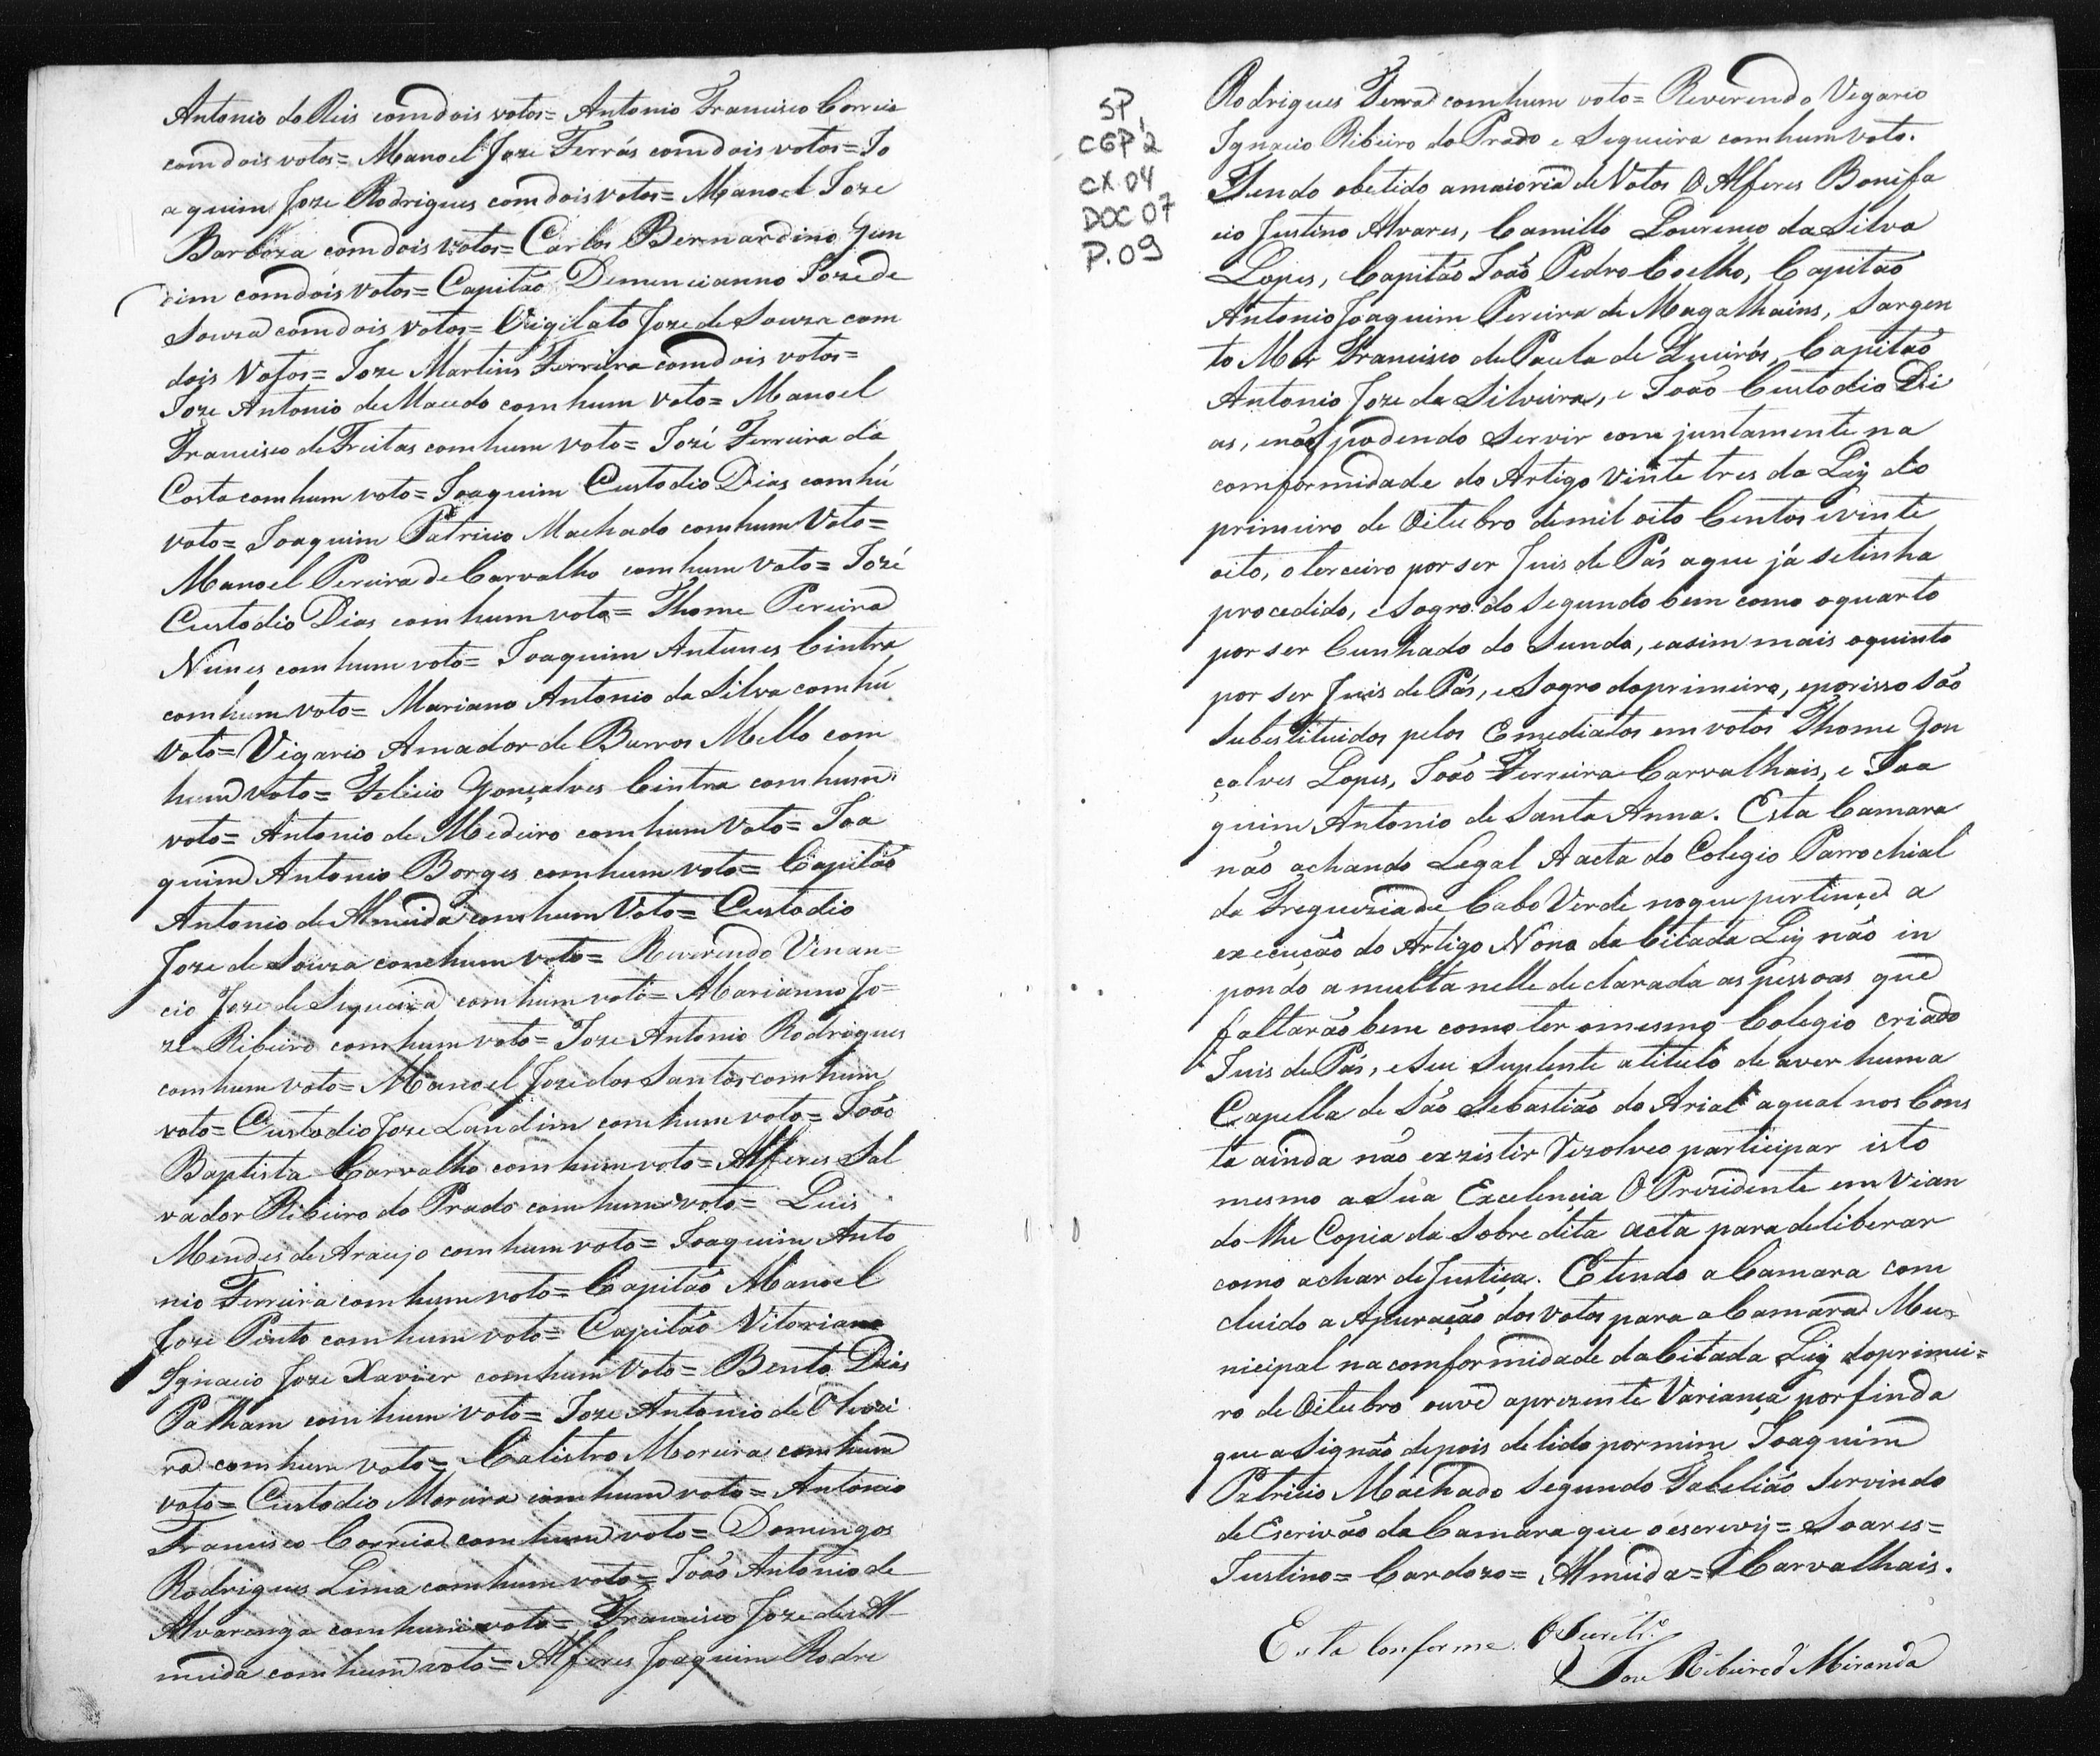 Antonio do Reis com dois votos = Antonio Francisco Correia
com dois votos = Manoel Joze Ferrás com dois votos = Jo
aquim Joze Rodrigues com dois votos = Manoel Joze
Barboza com dois votos = Carlos Bernardino Jun
dim com dois votos = Capitão Demencianno Joze de
Souza com dois votos = Vigilato Joze de Souza com
dois Votos = Joze Martins Ferreira com dois votos =
Joze Antonio de Macedo com hum voto = Manoel
Francisco de Freitas com hum voto = Jozé Ferreira da
Costa com hum voto = Joaquim Custodio Dias com hú
voto = Joaquim Patricio Machado com hum Voto =
Manoel Pereira de Carvalho com hum Voto = Jozé
Custodio Dias com hum voto = Thome Pereira
Nunes com hum voto = Joaquim Antunes Cintra
com hum voto = Mariano Antonio da Silva com hú
voto = Vigario Amador de Barros Mello com
hum voto = Felicio Gonçalves Cintra com hum
voto = Antonio de Medeiro com hum Voto = Joa
quim Antonio Borges com hum voto = Capitão
Antonio de Almeida com hum Voto = Custodio
Joze de Souza com hum voto = Reverendo Venan=
cio Joze de Siqueira com hum voto = Marianno Jo=
ze Ribeiro com hum voto = Joze Antonio Rodrigues
com hum voto = Manoel Joze dos Santos com hum
voto = Custodio Joze Landim com hum voto = João
Baptista Carvalho com hum voto = Alferes Sal
vador Ribeiro do Prado com hum voto = Luis
Mendes de Araujo com hum voto = Joaquim Anto
nio Ferreira com hum voto = Capitão Manoel
Joze Pinto com hum voto = Capitão Vitoriano
Ignacio Joze Xavier com hum Voto = Bento Dias
Palham com hum voto = Joze Antonio de Olivei
ra com hum voto = Calistro Moreira com hum
voto = Custodio Moreira com hum voto = Antonio
Francisco Correia com hum voto = Domingos
Rodrigues Lima com hum voto = João Antonio de
Alvarenga com hum voto = Francisco Joze de Al
meida com hum voto = Alferes Joaquim Rodri
SP,
CGP 2
CX 04
DOC 07
P. 09
Rodrigues Ferraz com hum voto = Reverendo Vegario
Ignacio Ribeiro do Prado e Sequeira com hum voto.
Tendo obetido a maioria de Votos O Alferes Bonifa
cio Justino Alvares, Camillo Lourenço da Silva
Lopes, Capitão João Pedro Coelho, Capitão
Antonio Joaquim Pereira de Magalhains, Sargen
to Mor Francisco de Paula de Queirós, Capitão
Antonio Joze da Silveira, e João Custodio Di
as, e não podendo Servir com juntamente na
comformidade do Artigo vinte tres da Ley do
primeiro de Oitubro de mil oito Centos e vinte
oito, o terceiro por ser Juis de Pás a que já se tinha
procedido, e Sogro do Segundo bem como o quarto
por ser Cunhado do Sundo, e asim mais o quinto
por ser Juis de Pás, e Sogro do primeiro, e por isso são
Substituidos pelos Emediatos em votos Thome Gon
çalves Lopes, João Ferreira Carvalhais, e Joa
quim Antonio de Santa Anna. Esta Camara
não achando Legal A acta do Colegio Parrochial
da Freguezia de Cabo Verde no que pertence a
execução do Artigo Nono da Citada Ley não in
pondo a multa nelle declarada as pessoas que
faltarão bem como ter o mesmo Colegio criado
Juis de Pás, e Seu Suplente a titulo de aver huma
Capella de São Sebastião do Arial a qual nos Cons
ta ainda não exzistir Rezolveo participar isto
mesmo a Sua Excelencia O Prezidente em Vian
do lhe Copia da Sobre dita Acta para deliberar
como achar de Justiça. E tendo a Camara com
cluido a Apuração dos Votos para a Camara Mu
nicipal na comformidade da Citada Ley do primei=
ro de Oitubro ouve a prezente Variança por finda
que a Signão depois de lido por mim Joaquim
Patricio Machado Segundo Tabelião Servindo
de Escrivão da Camara que o escrevy = Soares =
Justino = Cardozo = Almeida = Carvalhais.
Esta Conforme. O Secretr.º
Joze Ribeiro d' Miranda